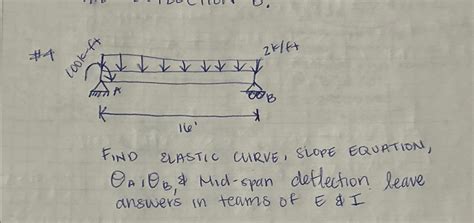 DEFLECTION D.
#4
100k-ft
2k/ft
A
B
16'
FIND ELASTIC CURVE, SLOPE EQUATION,
θA, θB, & Mid-span deflection leave
answers in teams of E & I